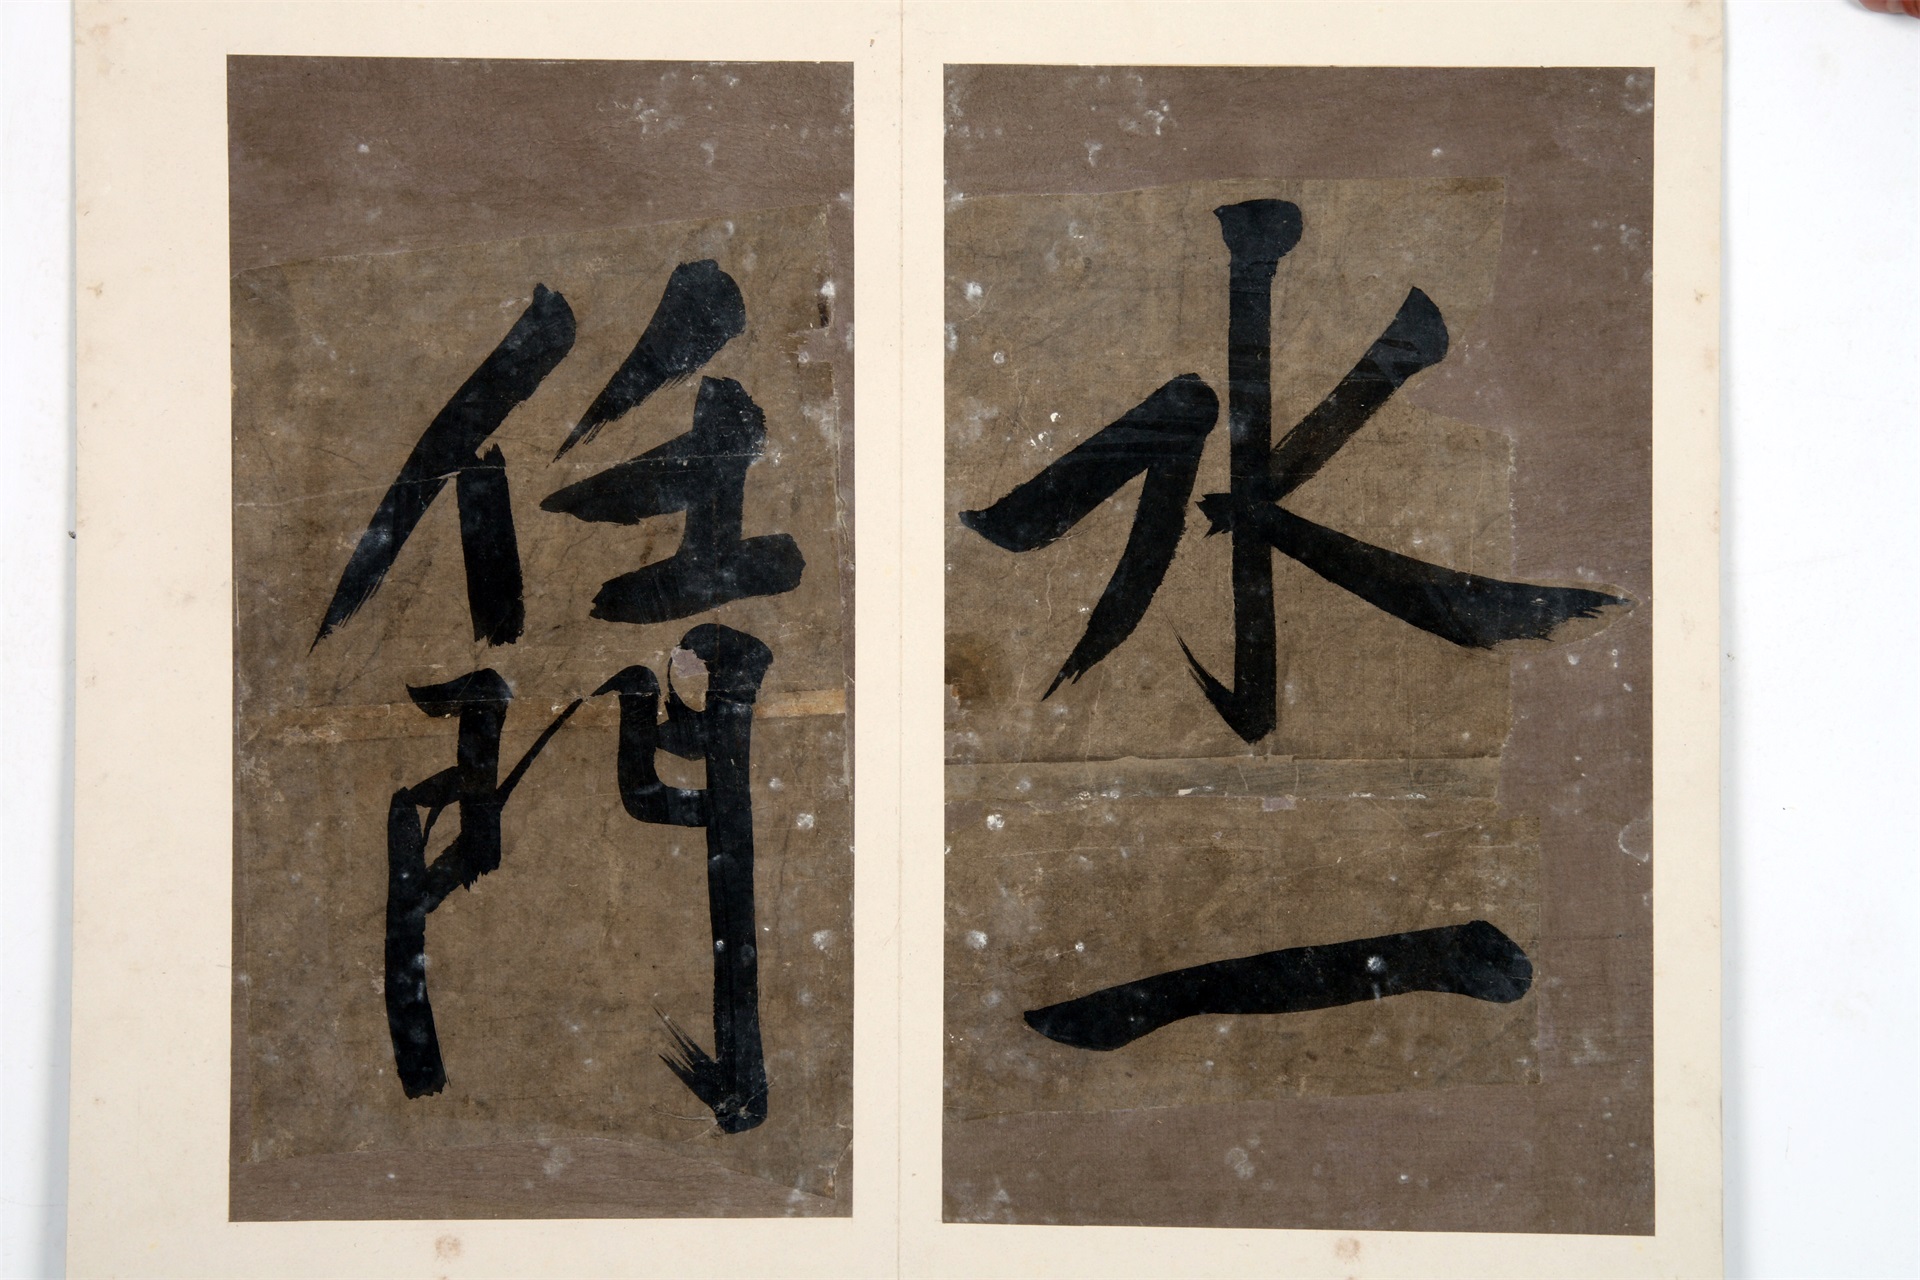 水一
任門